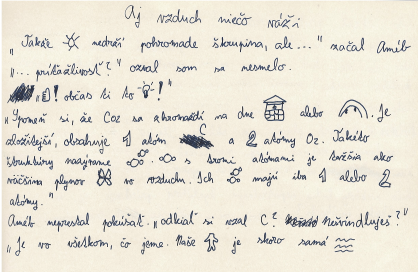 Aj vzduch niečo váži
„Takže nedrží pohromade škrupina, ale..." začal Améb
„...príťažlivosť?" ozval som sa nesmelo.
„! občas ti to!"
„Spomeň si, že CO2 sa zhromaždí na dne alebo . Je
zložitejší, obsahuje 1 atóm C a 2 atómy O2. Takéto
štruktúry nazývame s tromi atómami je ťažšia ako
väčšina plynov vo vzduchu. Ich majú iba 1 alebo 2
atómy."
Améb neprestal pokúšať. „odkiaľ si vzal C?
„Je vo všetkom, čo jeme. Naše je skoro samá